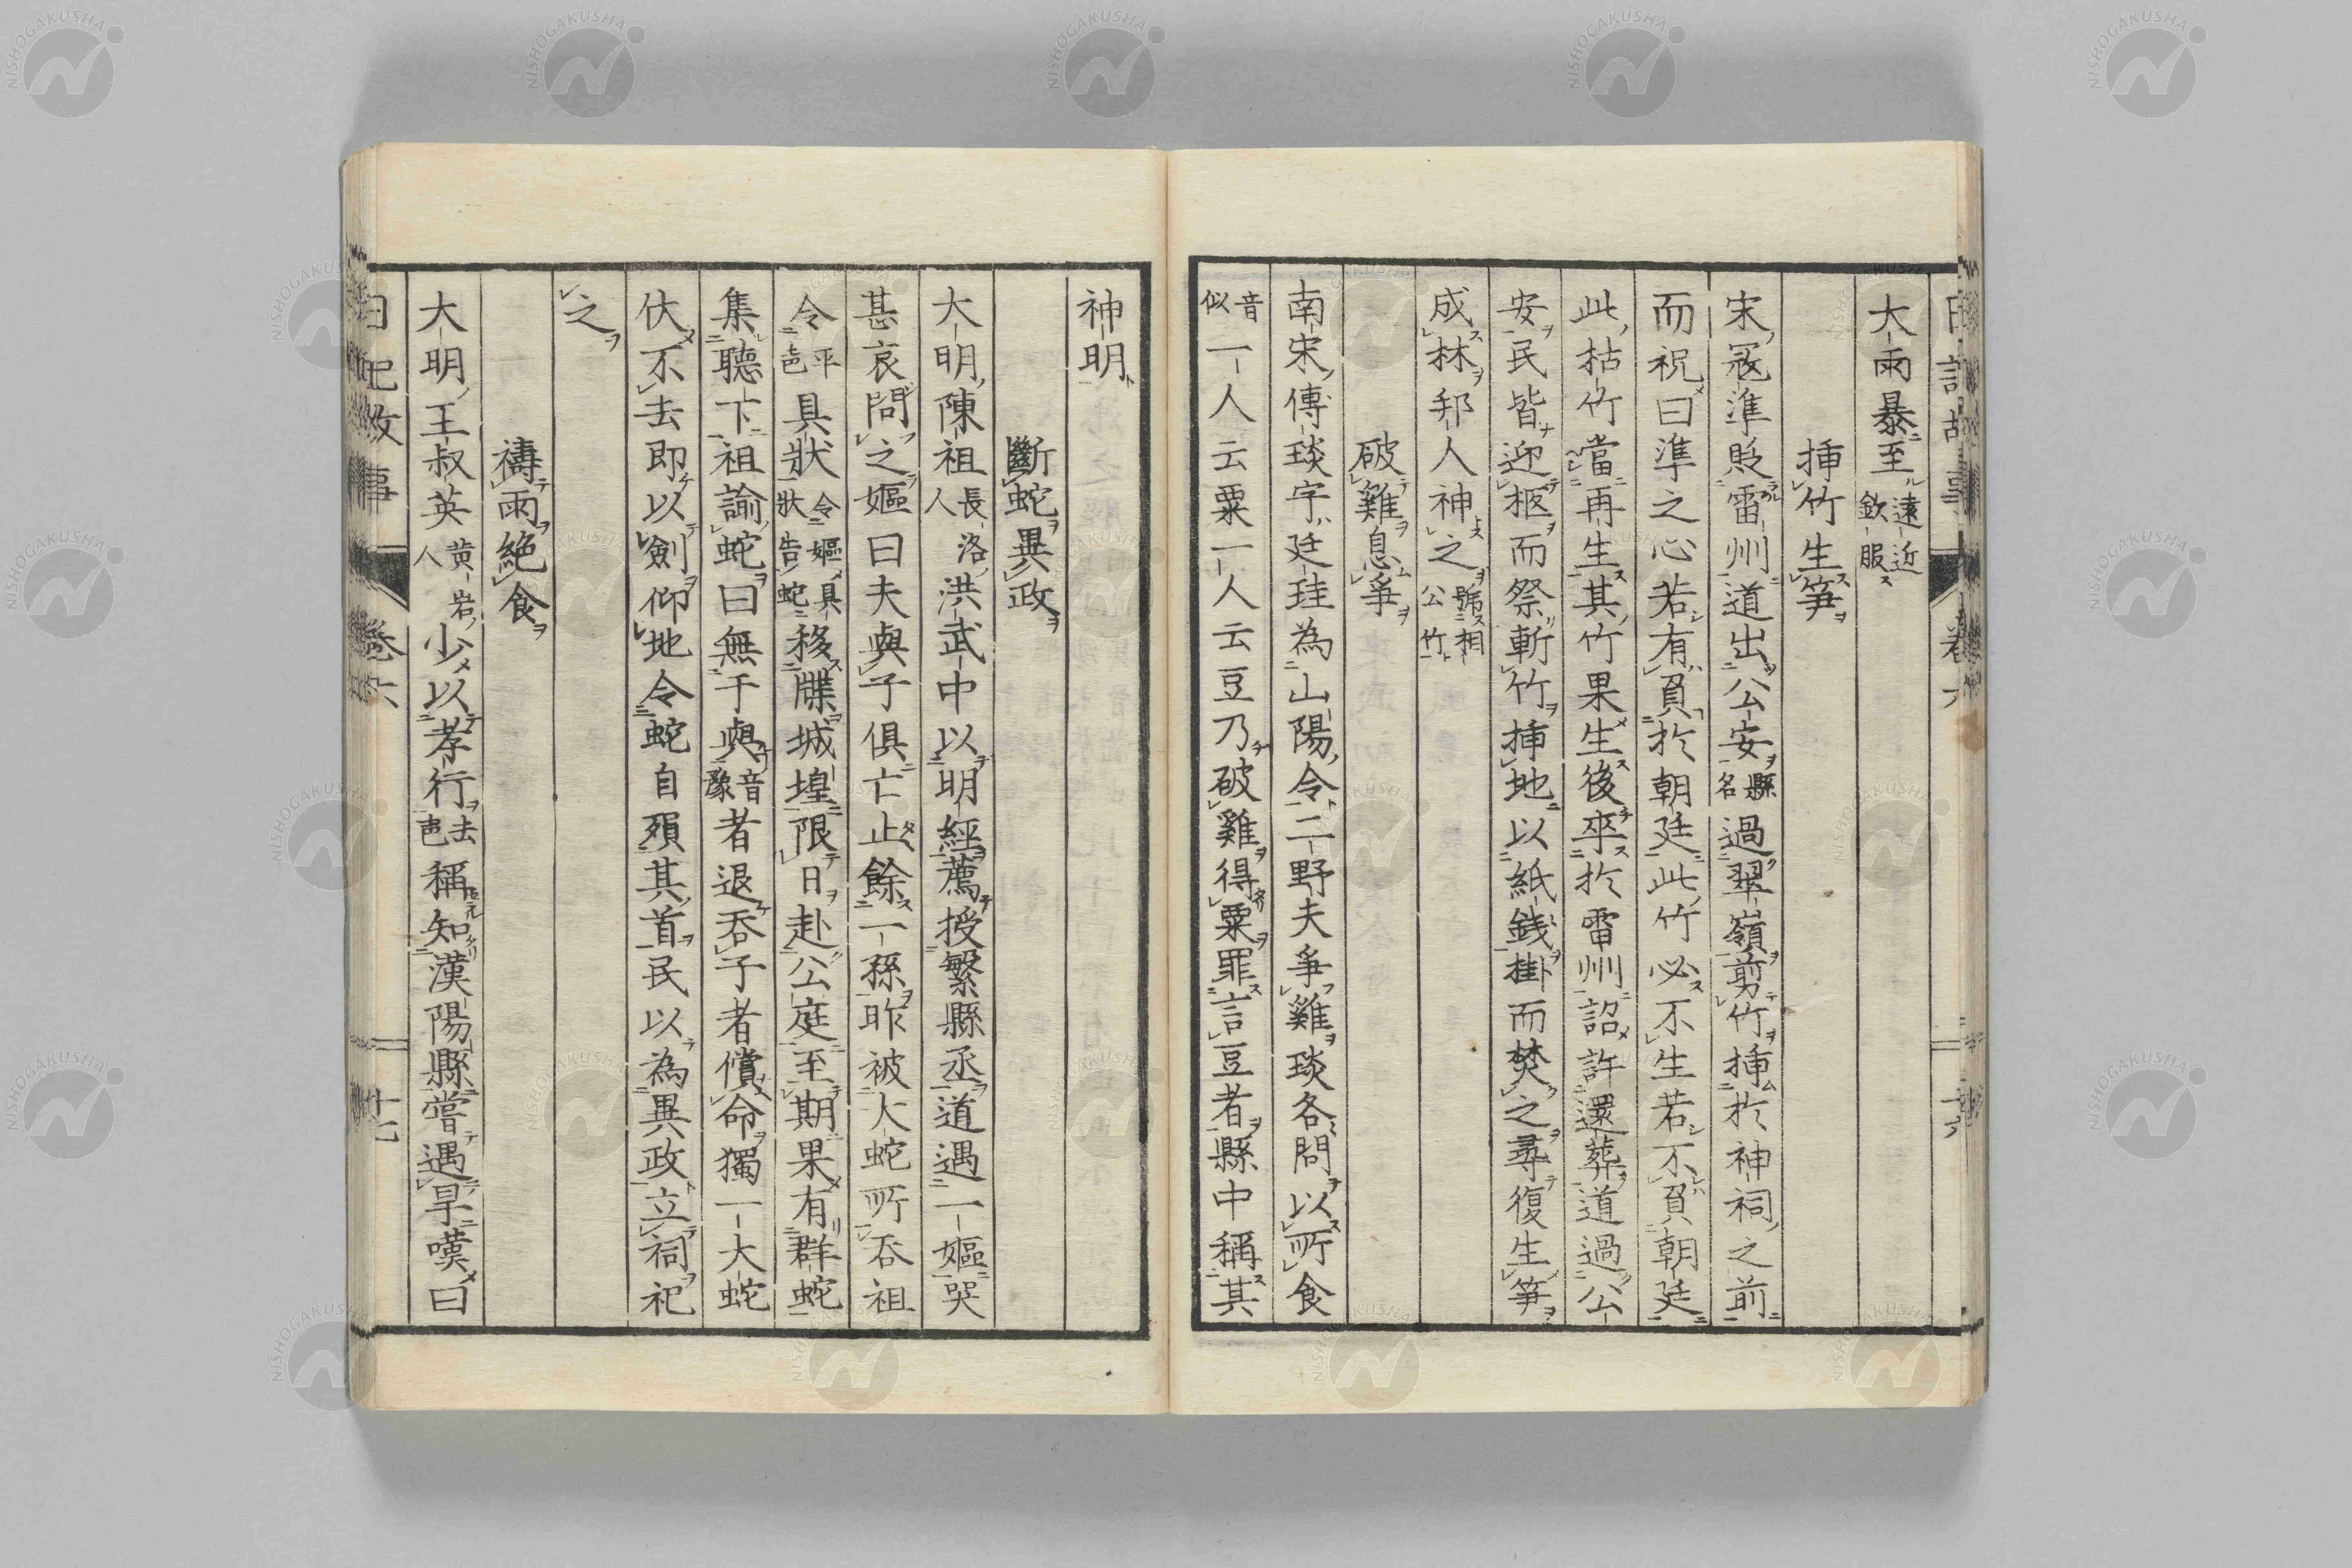 大雨暴至遠近欽服
挿竹生筍
宋寇準貶雷州道出公安縣名過翠嶺剪竹挿於神祠之前
而祝曰準之心若有負於朝廷此竹必不生若不負朝廷
此枯竹當再生其竹果生後卒於雷州詔許還葬道過公
安民皆迎柩而祭斬竹挿地以紙錢掛而焚之尋復生筍
成林邦人神之號相公竹
破雞息爭
南宋傅琰字廷珪為山陽令二野夫爭雞琰各問以所食
音似一人云粟一人云豆乃破雞得粟罪言豆者縣中稱其
神明
斷蛇異政
大明陳祖長洛人洪武中以明經薦授繁縣丞道遇一嫗哭
甚哀問之嫗曰夫與子俱亡止餘一孫昨被大蛇所吞祖
令平声具状令嫗具狀告蛇移牒城隍限日赴公庭至期果有群蛇
集聽下祖諭蛇曰無干與音豫者退吞子者償命獨一大蛇
伏不去即以劍仰地令蛇自殞其首民以為異政立祠祀
之
禱雨絶食
大明王叔英黄岩人少以孝行去声稱知漢陽縣嘗遇旱嘆曰
日記故事 卷六 十七
NISHOGAKUSHA